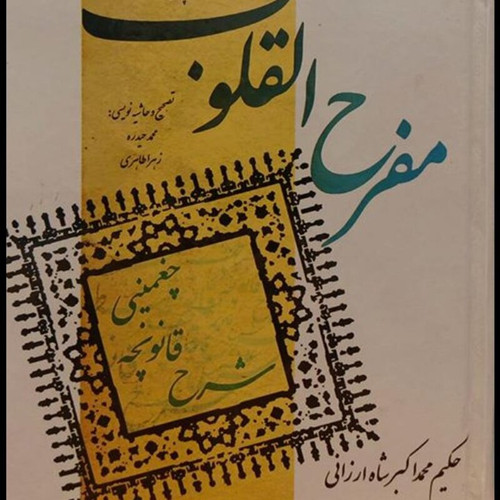 مفرح القلوب
تصحیح و حاشیه نویسی:
محمد حیدره
زهرا طاهری
شرح
قانونچه
چغمینی
حکیم محمد اکبر شاه ارزانی